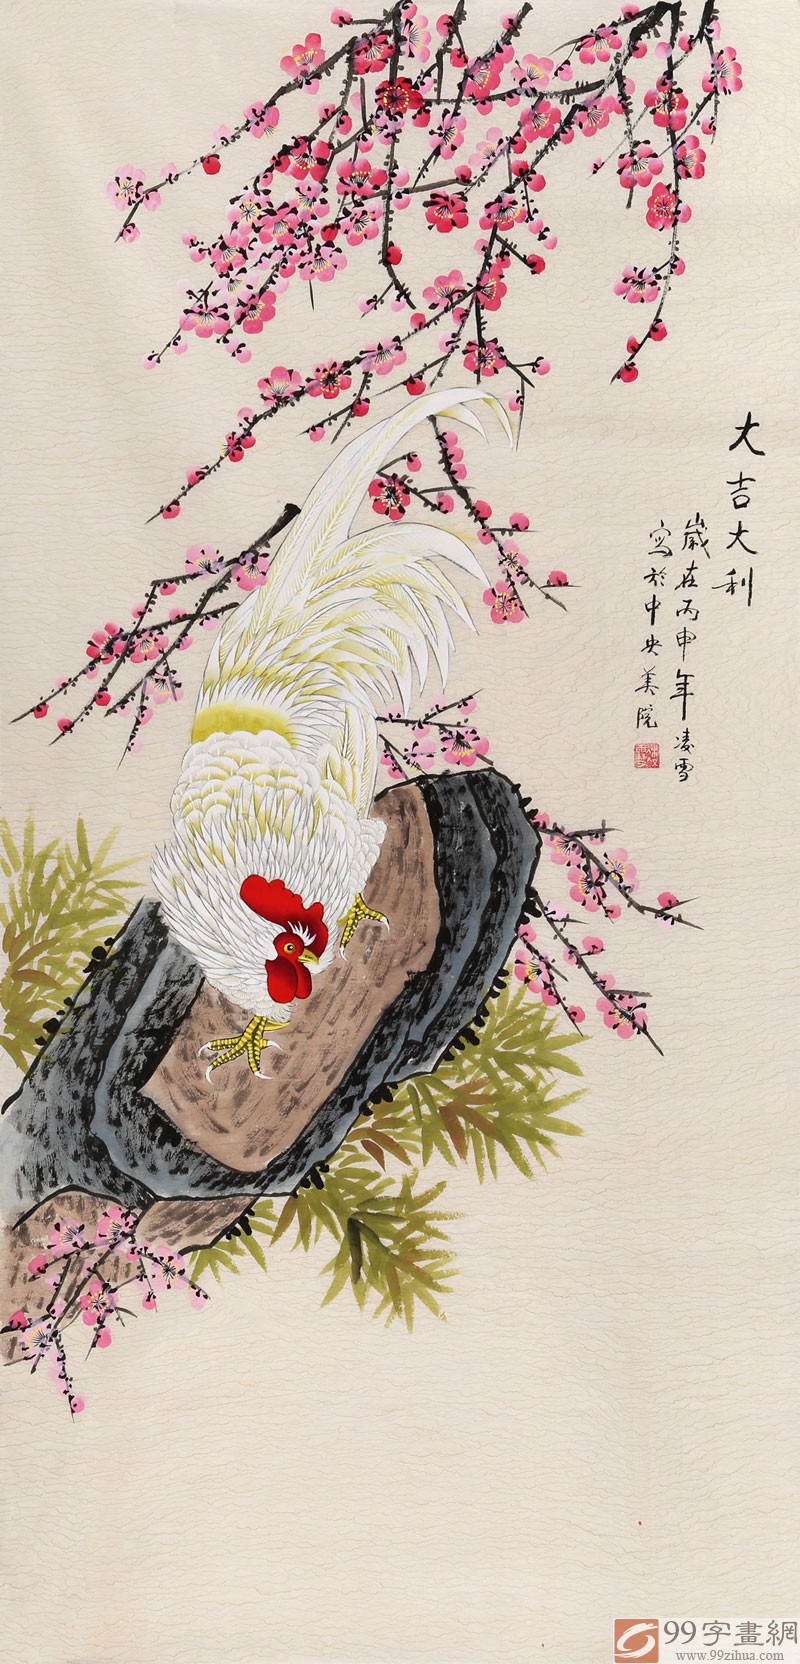 大吉大利
歲在丙申年凌雪
寫於中央美院
99字畫網
www.99zihua.com